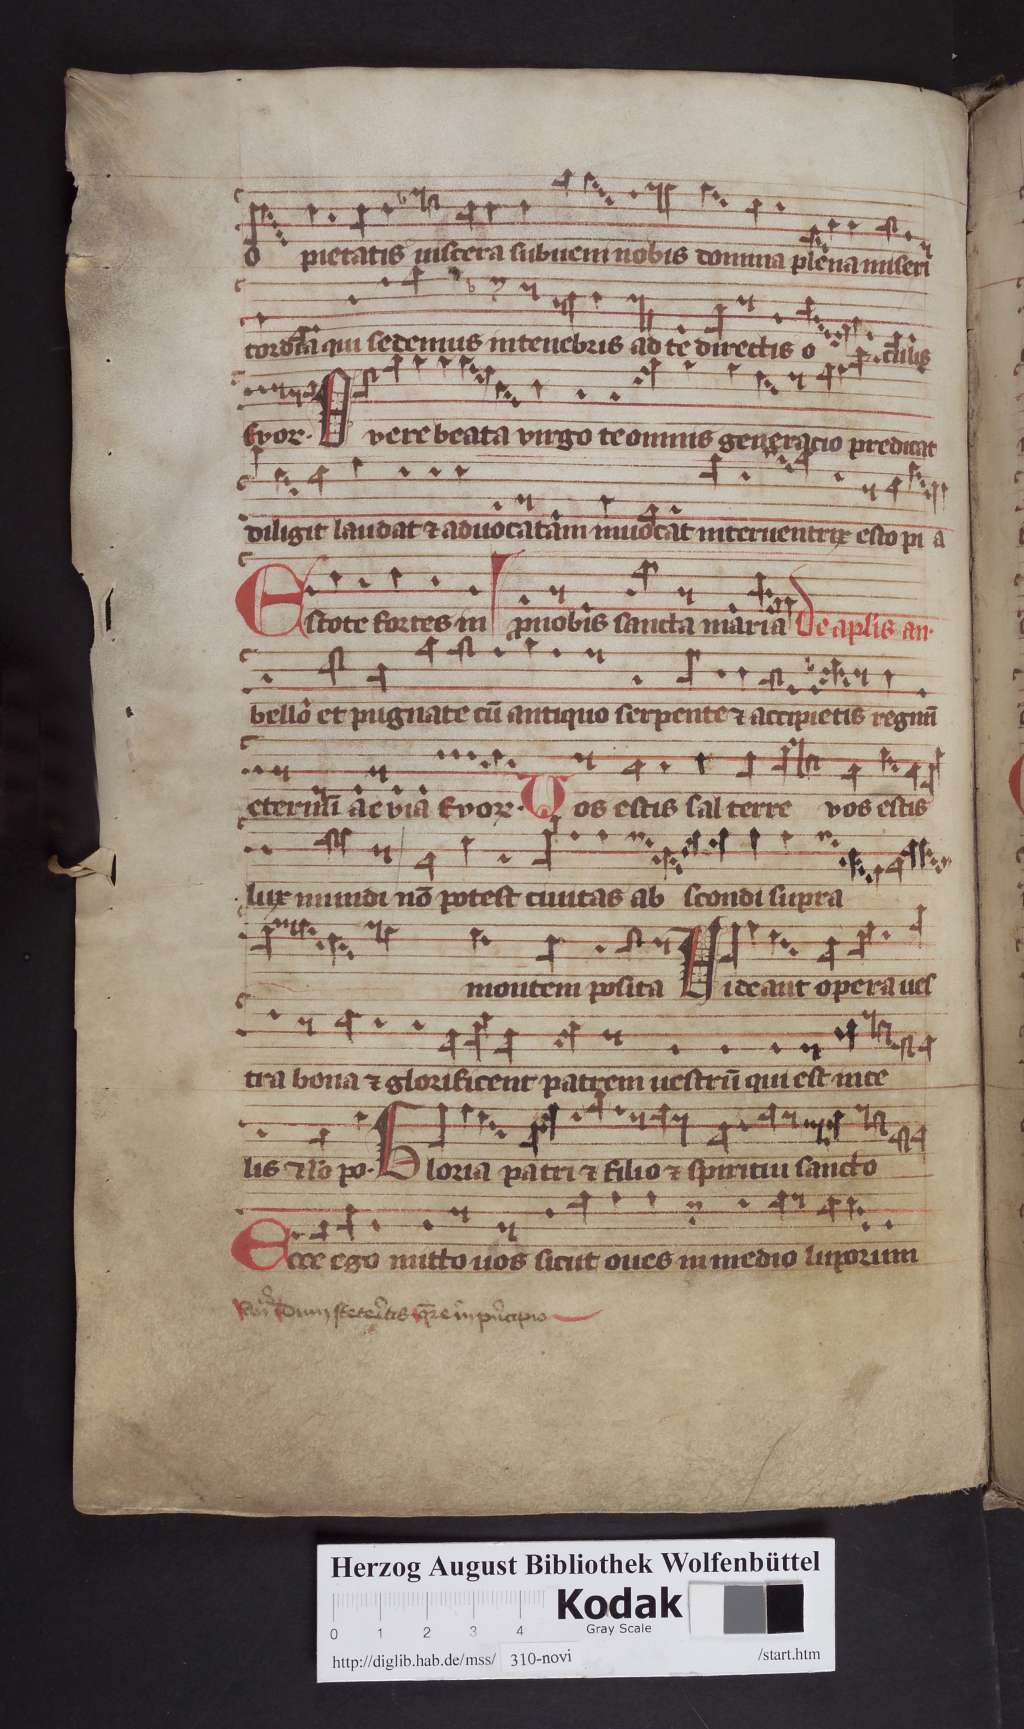 o pietatis viscera subueni nobis domina plena miseri
cordia qui sedemus in tenebris ad te directis o culis
Evor. O vere beata virgo te omnis generacio predicat
diligit laudat ⁊ aduocatam inuocat interuentrix esto pi a
Estote fortes in pro nobis sancta maria De aplis an.
bello et pugnate cū antiquo serpente ⁊ accipietis regnū
eternū ae via Evor. Vos estis sal terre vos estis
lux mundi nō potest ciuitas ab scondi supra
montem posita Videant opera ves
tra bona ⁊ glorificent patrem uestrū qui est in ce
lis ⁊ Gloria patri ⁊ filio ⁊ spiritui sancto
Ecce ego mitto uos sicut oues in medio luporum
Dum steteritis in principio
Herzog August Bibliothek Wolfenbüttel
Kodak
Gray Scale
0 1 2 3 4
http://diglib.hab.de/mss/ 310-novi /start.htm